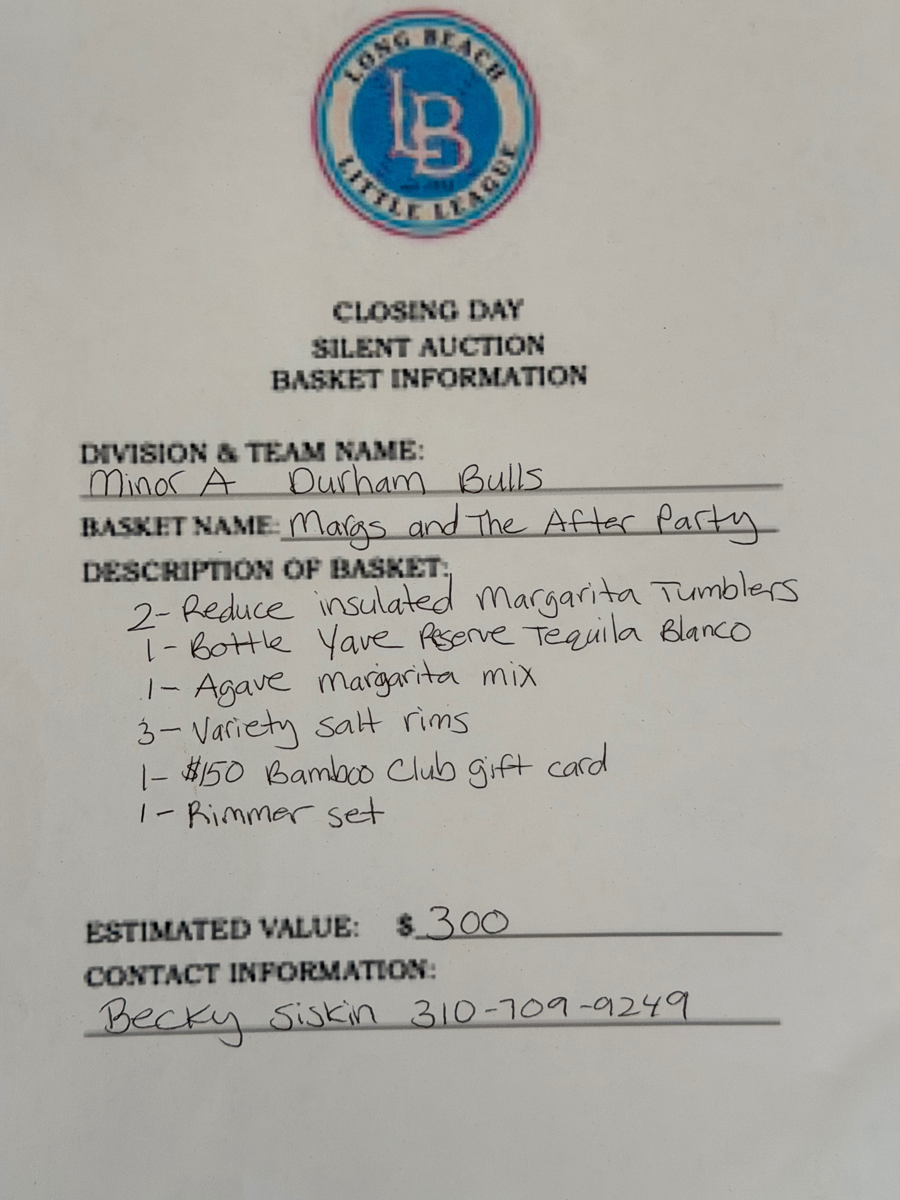 LONG BEACH
LB
LITTLE LEAGUE
CLOSING DAY
SILENT AUCTION
BASKET INFORMATION
DIVISION & TEAM NAME:
Minor A Durham Bulls
BASKET NAME: Margs and The After Party
DESCRIPTION OF BASKET:
2- Reduce insulated Margarita Tumblers
1- Bottle Yave Reserve Tequila Blanco
1- Agave margarita mix
3- Variety salt rims
1- $150 Bamboo Club gift card
1- Rimmer set
ESTIMATED VALUE: $ 300
CONTACT INFORMATION:
Becky Siskin 310-709-9249